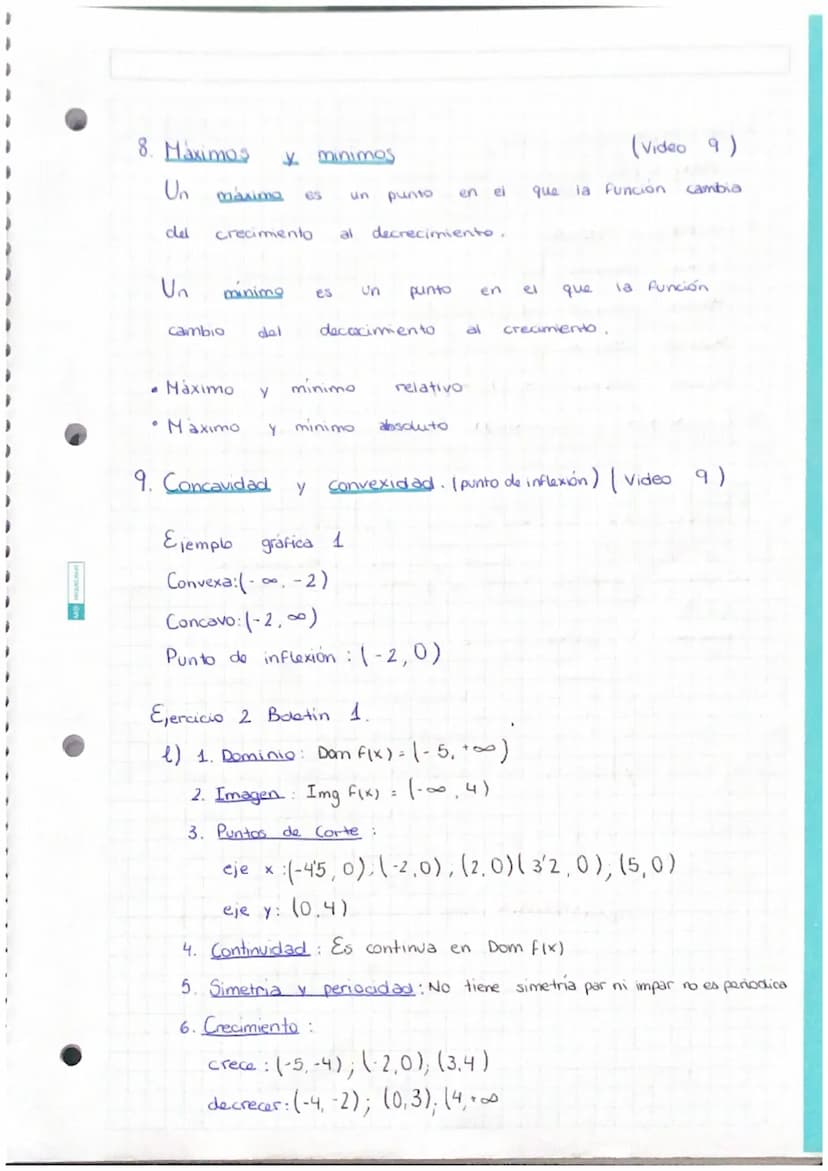 8. Máximos y mínimos (Video 9)
Un máximo es un punto en el que la función cambia
del crecimiento al decrecimiento.
Un mínimo es un punto en el que la función
cambio del dececimiento al crecimiento.
• Máximo y mínimo relativo
• Màximo y mínimo absoluto
9. Concavidad y convexidad. (punto de inflexión) (Video 9)
Ejemplo gráfica 1
Convexa: (-∞, -2)
Concavo: (-2, ∞)
Punto de inflexión: (-2, 0)
Ejercicio 2 Boletin 1.
l) 1. Dominio: Dom f(x) = (-5, +∞)
2. Imagen: Img f(x) = (-∞, 4)
3. Puntos de Corte:
eje x: (-4'5, 0); (-2,0), (2,0) (3'2, 0); (5,0)
eje y: (0,4)
4. Continuidad: Es continua en Dom f(x)
5. Simetria y periocidad: No tiene simetría par ni impar no es periodica
6. Crecimiento:
crece: (-5,-4); (-2,0); (3,4)
decrecer: (-4, -2); (0,3); (4,+∞